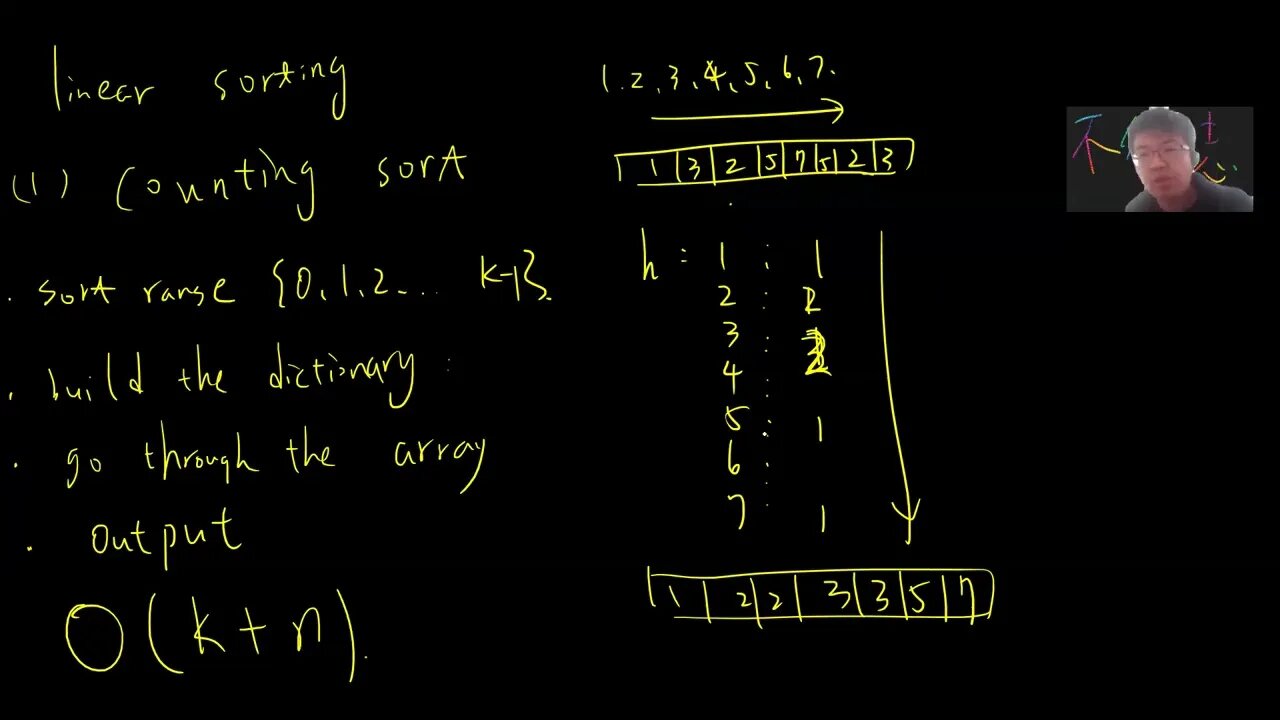 linear sorting
(1) Counting sort
. sort range {0,1,2... k-1}.
. build the dictionary :
. go through the array
. output
O(k+n).
1.2,3,4,5,6,7.
1 3 2 5 7 5 2 3
h : 1 : 1
2 : 2
3 : 2
4 :
5 : 1
6 :
7 : 1
1 2 2 3 3 5 7
不